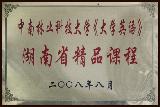 中南林业科技大学《大学英语》
湖南省精品课程
二〇〇八年八月